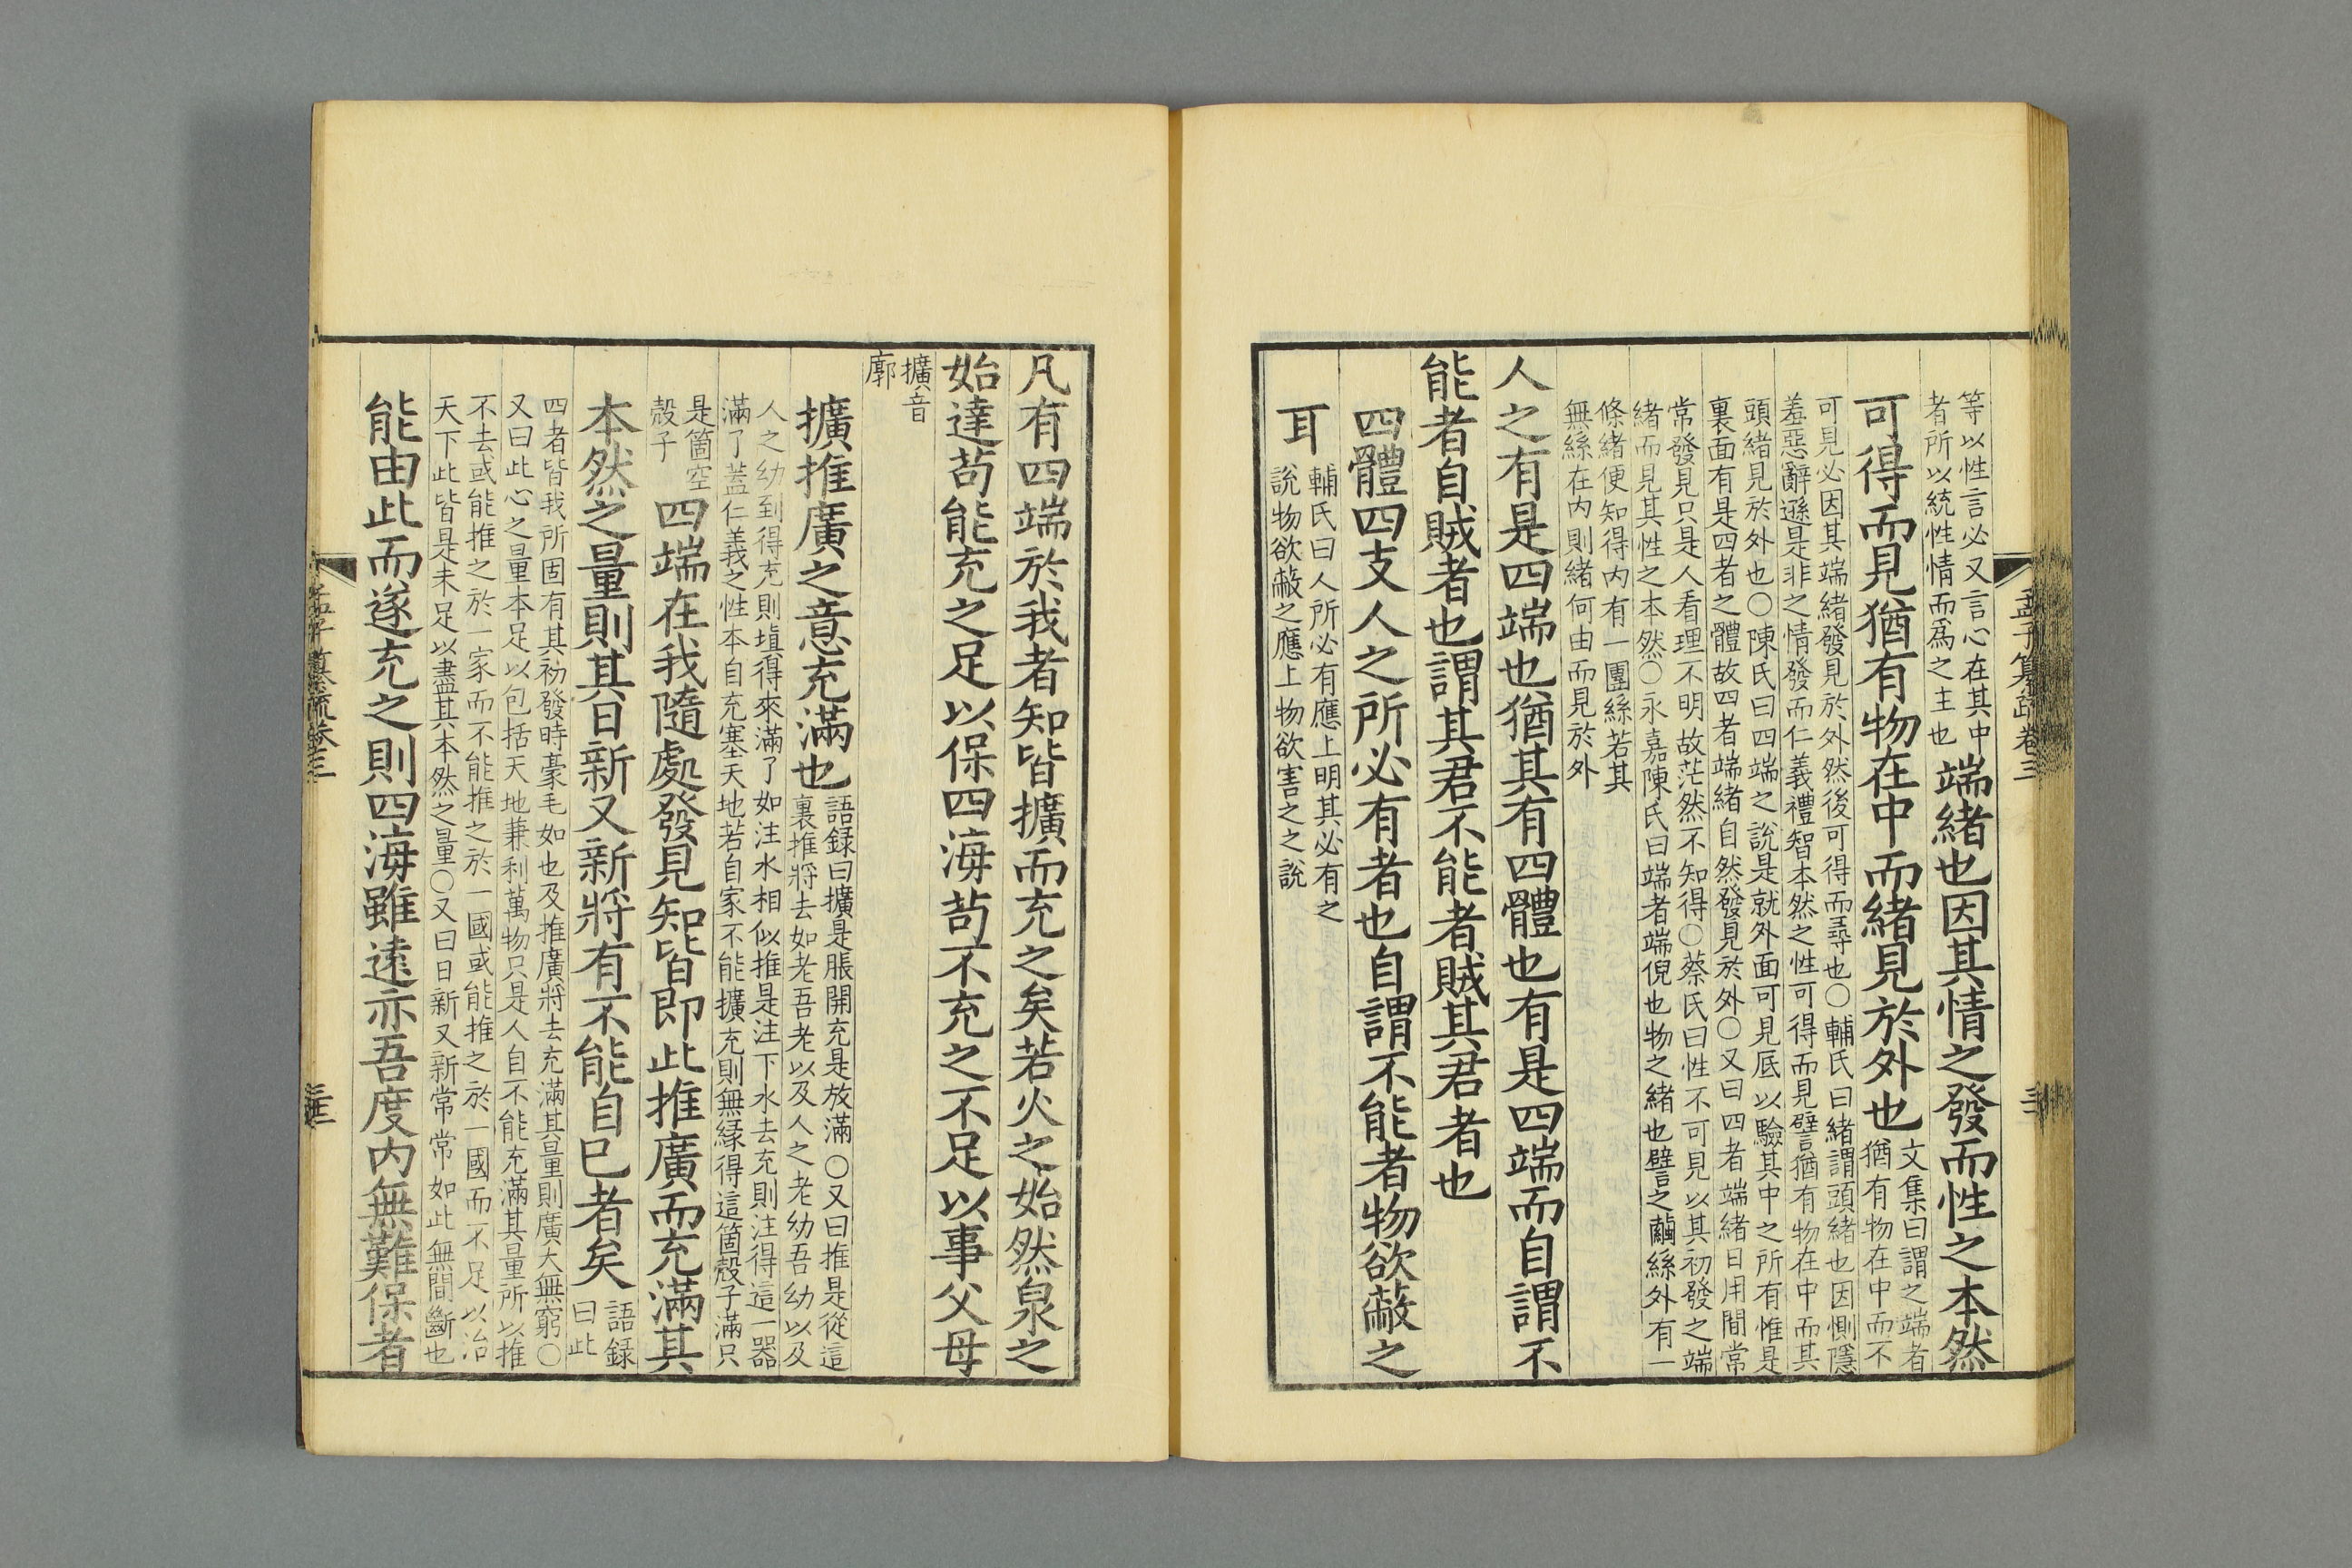 等以性言必又言心在其中
者所以統性情而爲之主也
端緒也因其情之發而性之本然
可得而見猶有物在中而緒見於外也
文集曰謂之端者
猶有物在中而不
可見必因其端緒發見於外然後可得而尋也○輔氏曰緒謂頭緒也因惻隱
羞惡辭遜是非之情發而仁義禮智本然之性可得而見譬猶有物在中而其
頭緒見於外也○陳氏曰四端之說是就外面可見底以驗其中之所有惟是
裏面有是四者之體故四者端緒自然發見於外○又曰四者端緒日用間常
常發見只是人看理不明故茫然不知得○蔡氏曰性不可見以其初發之端
緒而見其性之本然○永嘉陳氏曰端者端倪也物之緒也譬之繭絲外有一
條緒便知得内有一團絲若其
無絲在内則緒何由而見於外
人之有是四端也猶其有四體也有是四端而自謂不
能者自賊者也謂其君不能者賊其君者也
四體四支人之所必有者也自謂不能者物欲蔽之
耳
輔氏曰人所必有應上明其必有之
說物欲蔽之應上物欲害之之說
孟子纂疏卷三
凡有四端於我者知皆擴而充之矣若火之始然泉之
始達苟能充之足以保四海苟不充之不足以事父母
擴音
廓
擴推廣之意充滿也
語録曰擴是脹開充是放滿○又曰推是從這
裏推將去如老吾老以及人之老幼吾幼以及
人之幼到得充則塡得來滿了如注水相似推是注下水去充則注得這一器
滿了蓋仁義之性本自充塞天地若自家不能擴充則無緣得這箇殼子滿只
是箇空
殼子
四端在我隨處發見知皆即此推廣而充滿其
本然之量則其日新又新將有不能自已者矣
語録
曰此
四者皆我所固有其初發時毫毛如也及推廣將去充滿其量則廣大無窮○
又曰此心之量本足以包括天地兼利萬物只是人自不能充滿其量所以推
不去或能推之於一家而不能推之於一國或能推之於一國而不足以治
天下此皆是未足以盡其本然之量○又曰日新又新常常如此無間斷也
能由此而遂充之則四海雖遠亦吾度内無難保者
孟子纂疏卷三